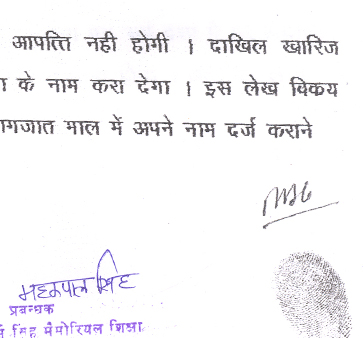 आपत्ति नही होगी । दाखिल खारिज
के नाम करा देगा । इस लेख विकय
ागजात माल में अपने नाम दर्ज कराने
महकपाल सिंह
प्रबन्धक
सिंह मैमोरियल शिक्षा